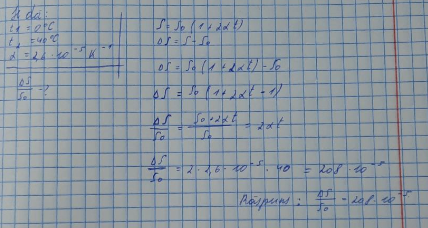 t1 = 0°C
t2 = 40°C
α = 2,6 · 10⁻⁵ K⁻¹
ΔS/S₀ - ?
S = S₀ (1 + 2αt)
ΔS = S - S₀
ΔS = S₀ (1 + 2αt) - S₀
ΔS = S₀ (1 + 2αt - 1)
ΔS/S₀ = S₀ + 2αt/S₀ = 2αt
ΔS/S₀ = 2 · 2,6 · 10⁻⁵ · 40 = 208 · 10⁻⁵
Răspuns: ΔS/S₀ - 208 · 10⁻⁵